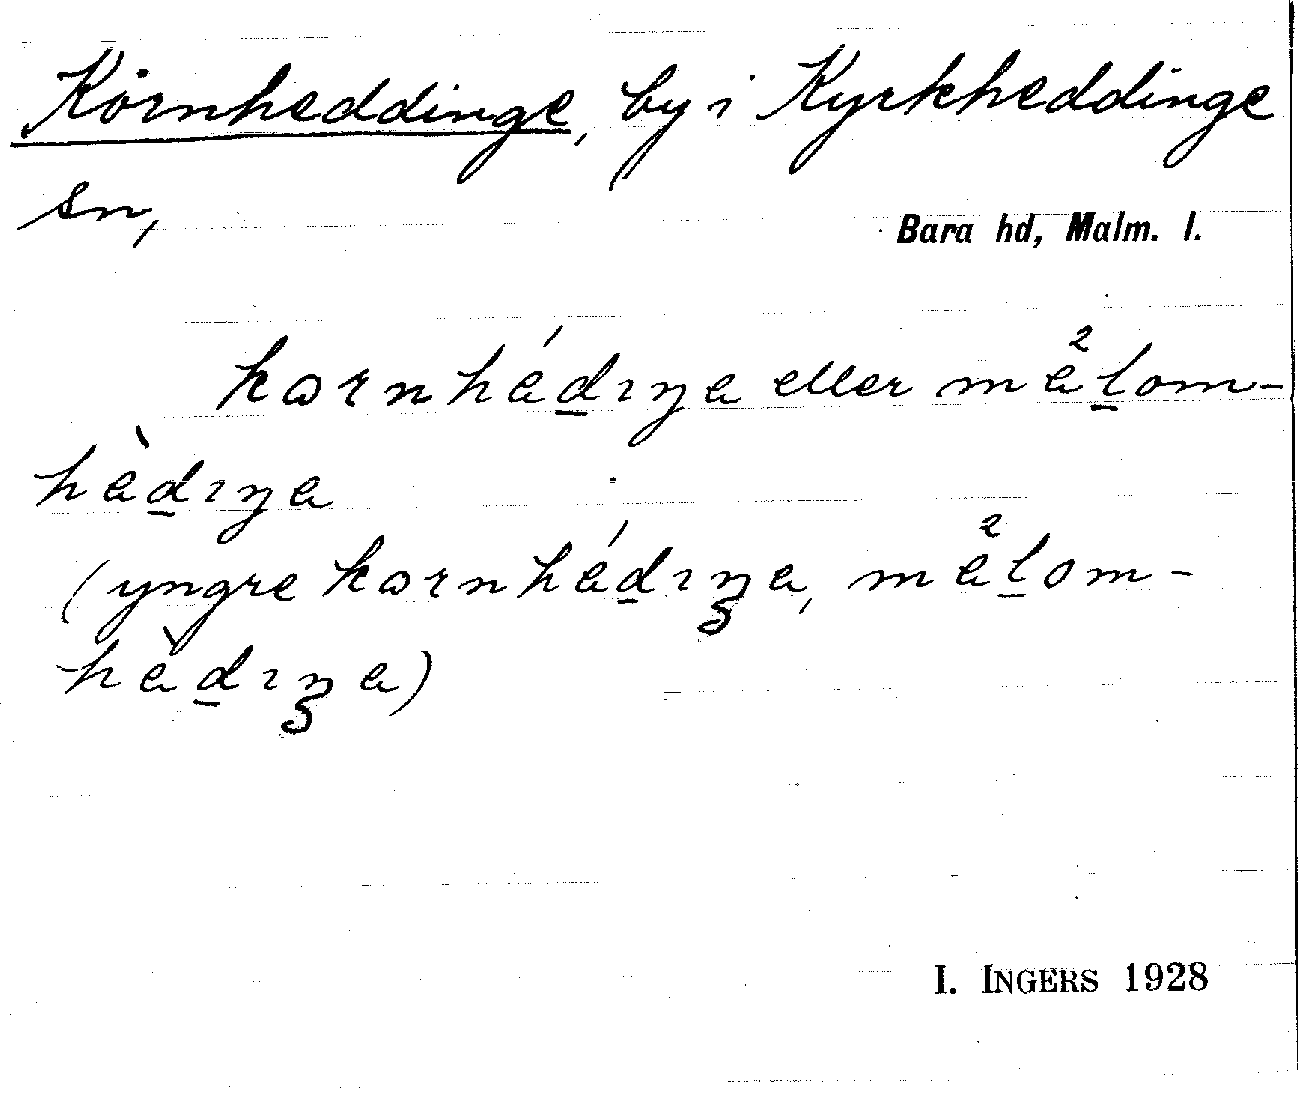 Körnheddinge, by i Kyrkheddinge
sn,
Bara hd, Malm. l.
kɷrnhéd̲ıŋa eller må̂l̲om-
hèd̲ıŋa
(yngre kɷrnhéd̲ıŋa, må̂l̲om-
hèd̲ıŋa)
I. INGERS 1928